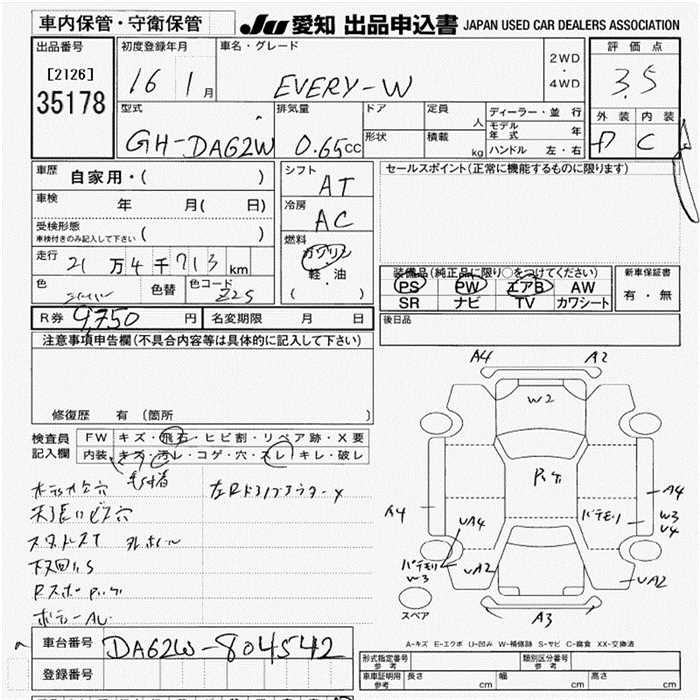 車内保管・守衛保管
JU 愛知 出品申込書 JAPAN USED CAR DEALERS ASSOCIATION
出品番号
[2126]
35178
初度登録年月
16 1月
車名・グレード
EVERY-W
2WD
・
4WD
評価点
3.5
外装 内装
D C
型式
GH-DA62W
排気量
0.65cc
ドア
形状
定員
人
積載
kg
ディーラー・並行
モデル年式 年
ハンドル 左・右
車歴 自家用・( )
車検 年 月( 日)
受検形態
車検付きのみ記入して下さい ( )
走行 21万4千713km
色 シルバー 色替 色コード Z2S
シフト
AT
冷房
AC
燃料
ガソリン
・
軽・油
( )
セールスポイント(正常に機能するものに限ります)
装備品(純正品に限り○をつけてください)
PS PW エアB AW
SR ナビ TV カワシート
新車保証書
有・無
R券 9,750円 名変期限 月 日
後日品
注意事項申告欄(不具合内容等は具体的に記入して下さい)
修復歴 有 (箇所 )
検査員記入欄
FW キズ・飛石・ヒビ割・リペア跡・X要
内装 キズ・汚レ・コゲ・穴・スレ・キレ・破レ
下回りS
A4 A2
W2
A4
A4
UA4
W3
U4
W3
UA2
UA2
A3
スペア
A-キズ E-エクボ U-凹み W-補修跡 S-サビ C-腐食 XX-交換済
車台番号 DA62W-804542
登録番号
形式指定番号
参考
類別区分番号
参考
車庫証明用
参考
長さ cm 幅 cm 高さ cm